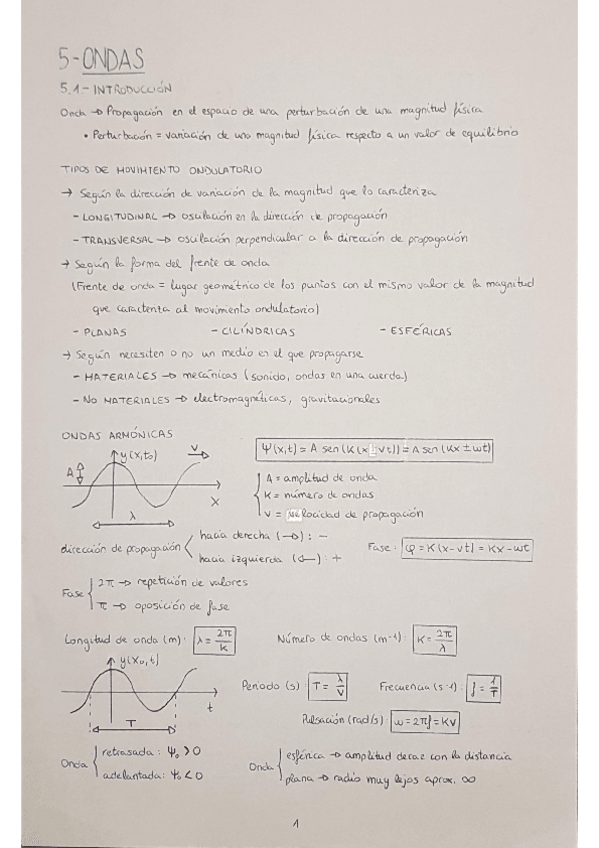 5-ONDAS
5.1- INTRODUCCIÓN
Onda → Propagación en el espacio de una perturbación de una magnitud física
• Perturbación = variación de una magnitud física respecto a un valor de equilibrio
TIPOS DE MOVIMIENTO ONDULATORIO
→ Según la dirección de variación de la magnitud que lo caracteriza
- LONGITUDINAL → oscilación en la dirección de propagación
- TRANSVERSAL → oscilación perpendicular a la dirección de propagación
→ Según la forma del frente de onda
(Frente de onda = lugar geométrico de los puntos con el mismo valor de la magnitud
que caracteriza al movimiento ondulatorio)
- PLANAS - CILÍNDRICAS - ESFÉRICAS
→ Según necesiten o no un medio en el que propagarse
- MATERIALES → mecánicas (sonido, ondas en una cuerda)
- NO MATERIALES → electromagnéticas, gravitacionales
ONDAS ARMÓNICAS
y(x,t₀) V A λ X
Ψ(x,t) = A sen(K(x ± vt)) = A sen(Kx ± ωt)
A = amplitud de onda
K = número de ondas
V = velocidad de propagación
dirección de propagación hacia derecha (→): -
hacia izquierda (←): +
Fase: φ = K(x-vt) = Kx - ωt
Fase 2π → repetición de valores
π → oposición de fase
Longitud de onda (m): λ = 2π/K Número de ondas (m⁻¹): K = 2π/λ
y(x₀,t) T t
Periodo (s): T = λ/V Frecuencia (s⁻¹): f = 1/T
Pulsación (rad/s): ω = 2πf = KV
Onda retrasada: Ψ₀ > 0
adelantada: Ψ₀ < 0
Onda esférica → amplitud decae con la distancia
plana → radio muy lejos aprox. ∞
1